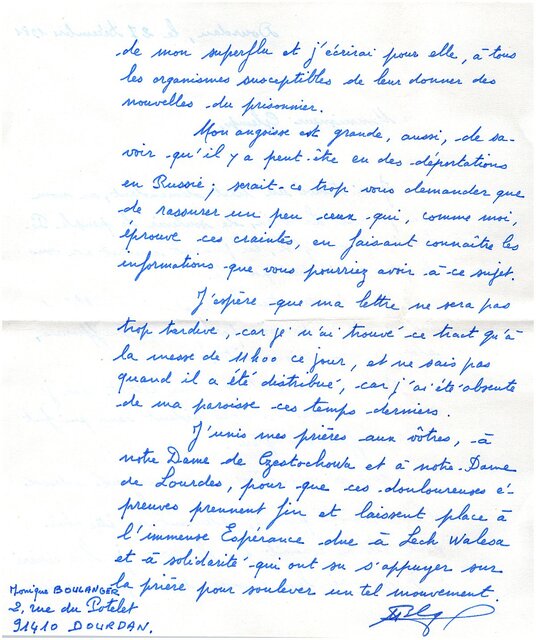 de mon superflu et j'écrirai pour elle, à tous
les organismes susceptibles de leur donner des
nouvelles du prisonnier.
Mon angoisse est grande, aussi, de sa-
voir qu'il y a peut-être eu des déportations
en Russie ; serait-ce trop vous demander que
de rassurer un peu ceux qui, comme moi,
éprouve ces craintes, en faisant connaître les
informations que vous pourriez avoir à ce sujet.
J'espère que ma lettre ne sera pas
trop tardive, car je n'ai trouvé ce tract qu'à
la messe de 11h00 ce jour, et ne sais pas
quand il a été distribué, car j'ai été absente
de ma paroisse ces temps derniers.
J'unis mes prières aux vôtres, à
notre Dame de Czestochowa et à notre-Dame
de Lourdes, pour que ces douloureuses é-
preuves prennent fin et laissent place à
l'immense Espérance due à Lech Walesa
et à solidarité qui ont su s'appuyer sur
la prière pour soulever un tel mouvement.
Monique BOULANGER
2, rue du Potelet
91410 DOURDAN.